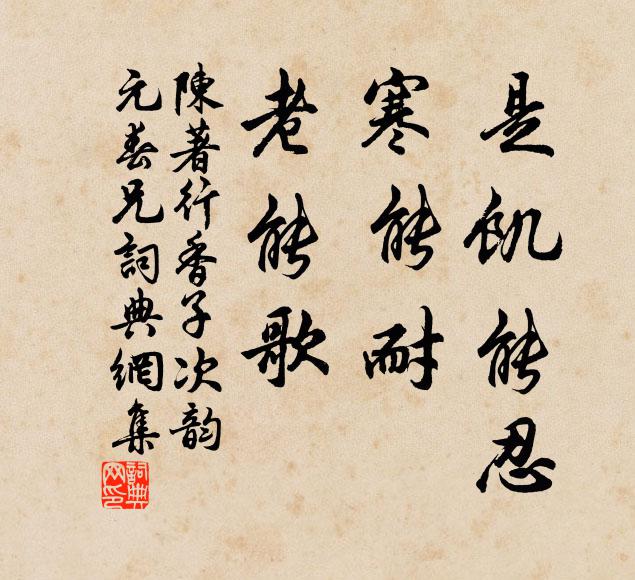 是飢能忍
寒能耐
老能歌
陳著行香子次韵
元春兄詞典網集
詞典网印